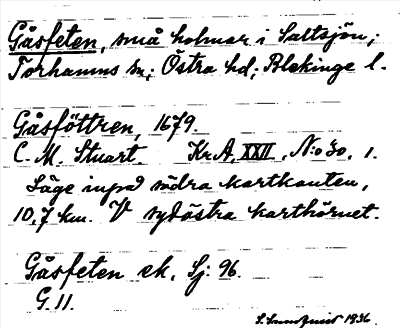 Gåsfeten, små holmar i Saltsjön;
Torhamns sn; Östra hd; Blekinge l.
Gåsföttren, 1679.
C. M. Stuart. Kr. A, XXII, N:o 30, 1.
Läge inpå södra kartkanten,
10,7 km. V sydöstra karthörnet.
Gåsfeten sk. Sj: 96.
G. 11.
S. Sundquist 1936